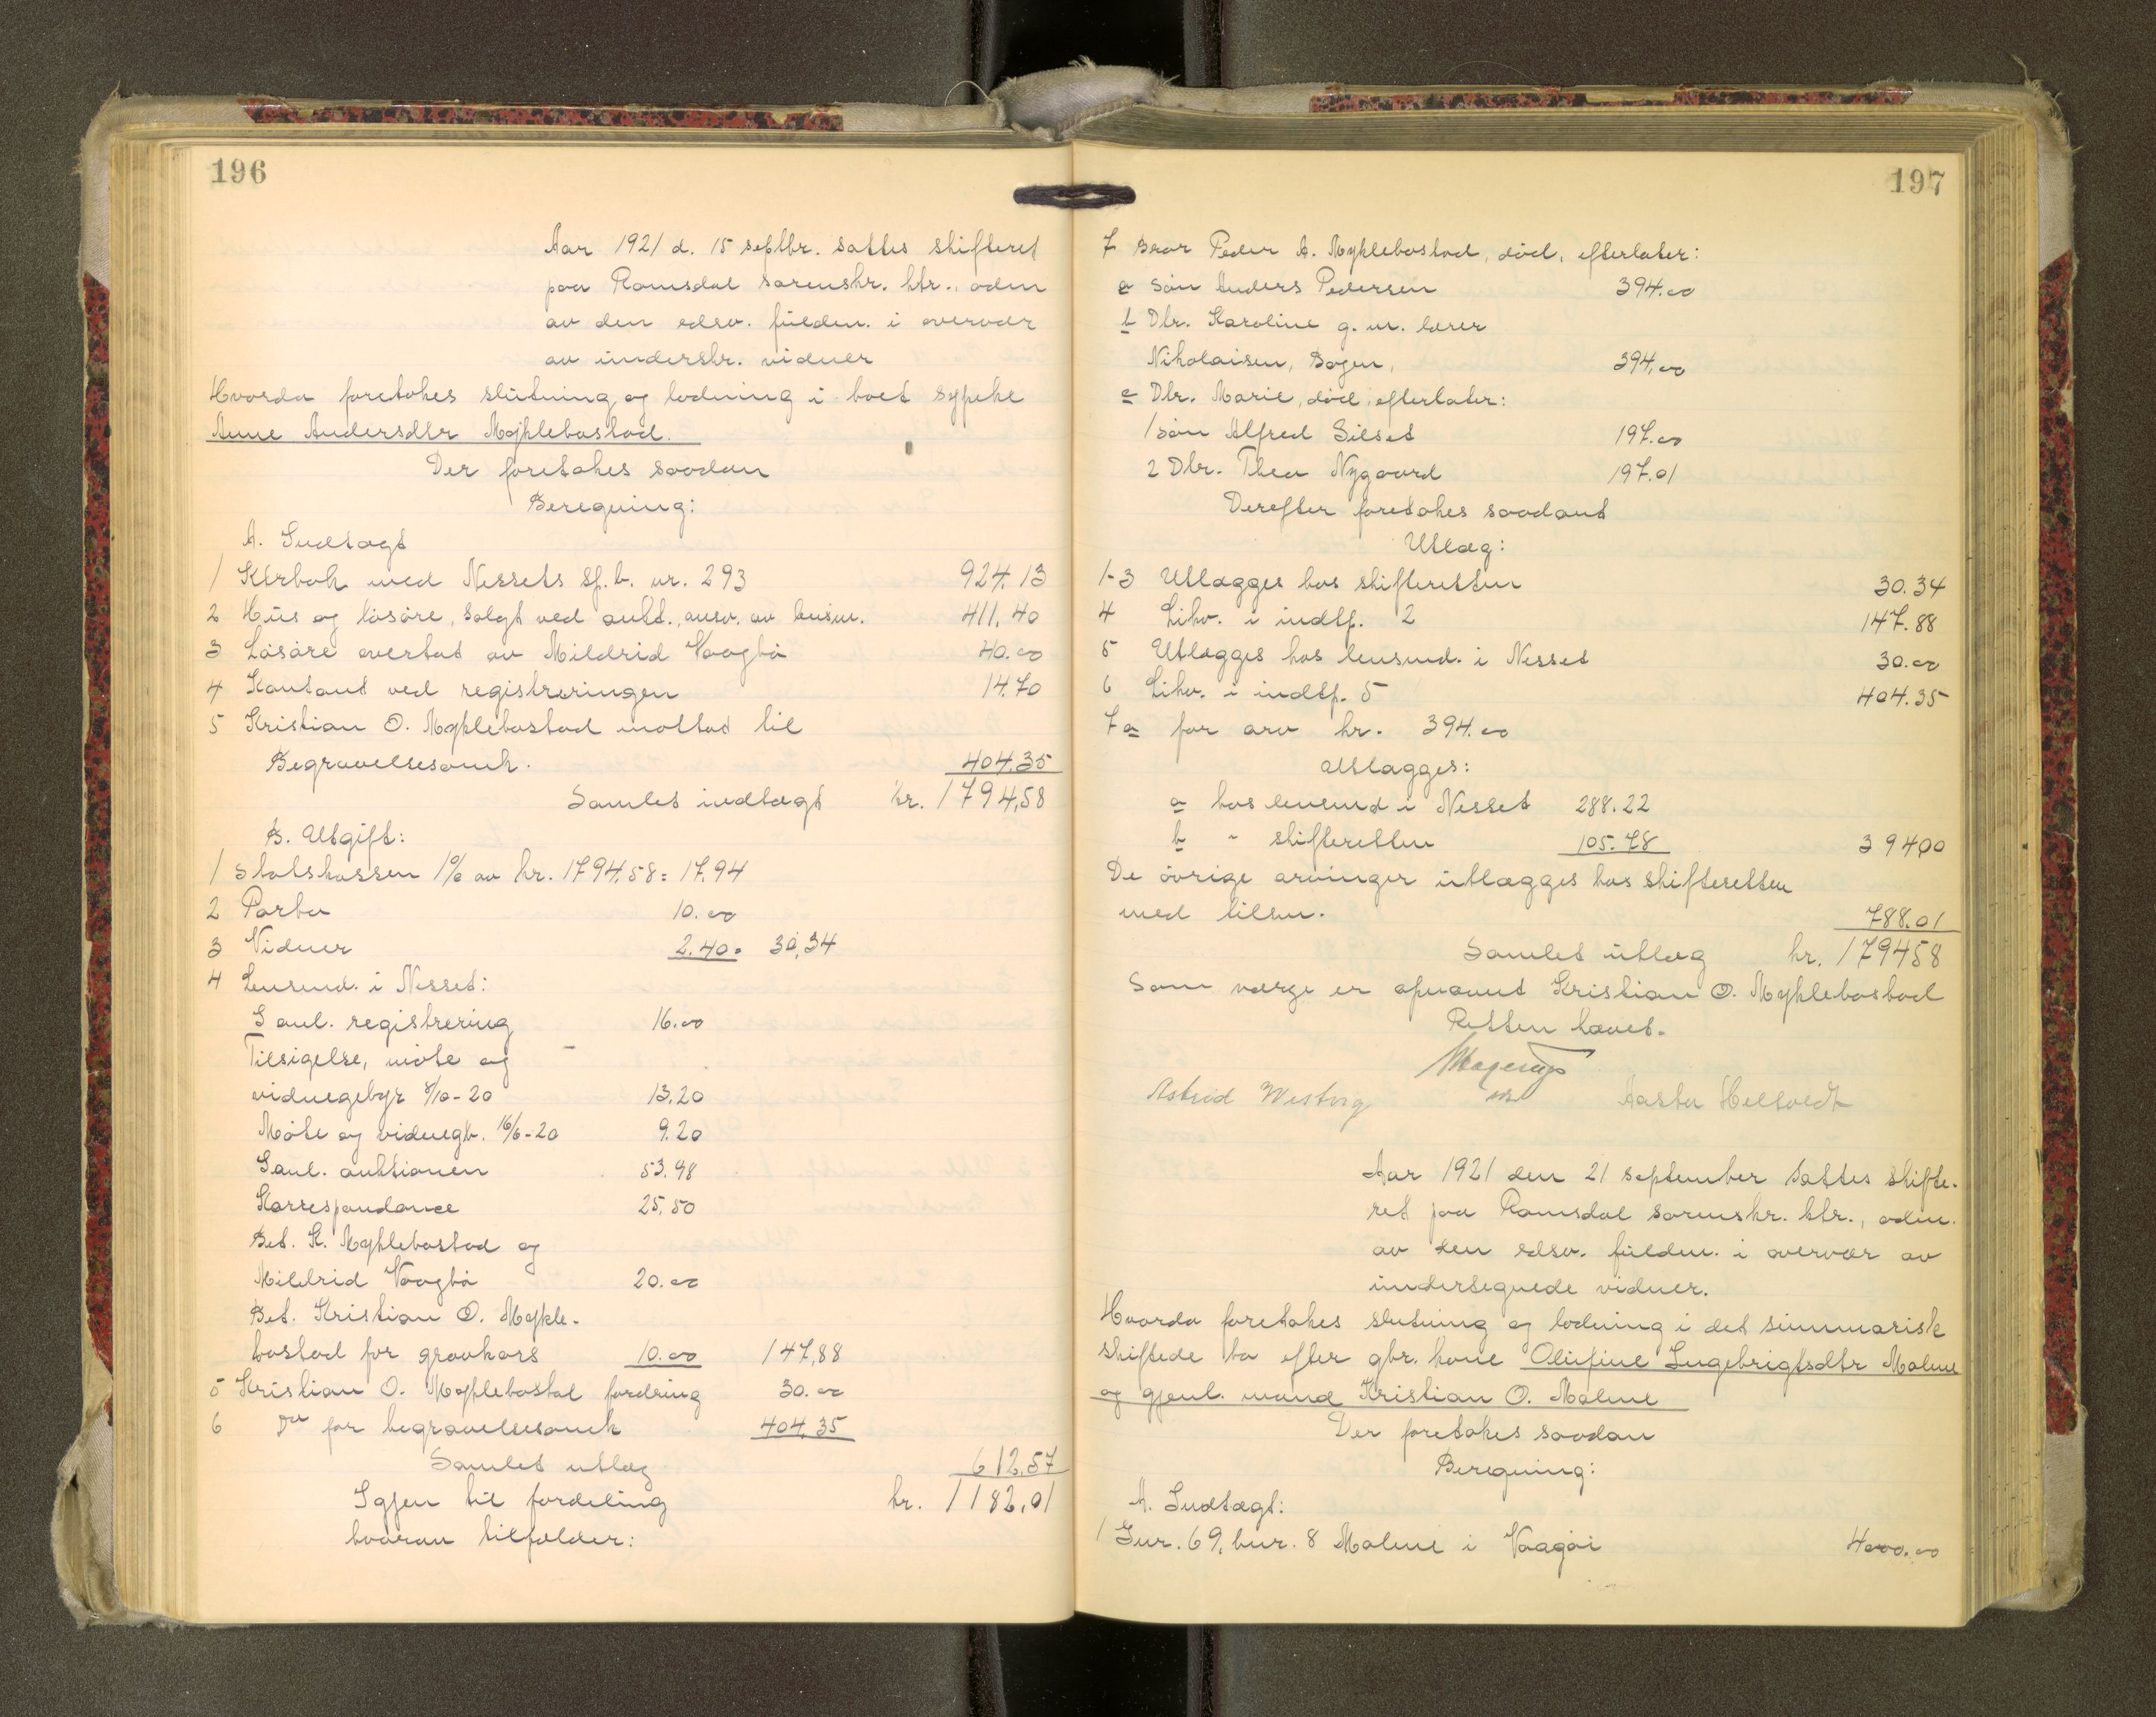 196
Aar 1921 d. 15 septbr. sattes skifteret
paa Romsdal sorenskr. ktr., adm
av den edsv. fuldm. i overvær
av underskr. vidner
Hvorda foretokes slutning og lodning i boet sypike
Anne Andersdtr Myklebostad.
Der foretokes saadan
Beregning:
A. Indtægt
1 Ktrbok med Nessets sp.b. nr. 293 924.13
2 Hus og løsøre, solgt ved aukt., ansv. av lensm. 411.40
3 Løsøre overtat av Mildrid Vaagbø 40.00
4 Kontant ved registreringen 14.70
5 Kristian O. Myklebostad mottat til
Begravelsesomk. 404.35
Samlet indtægt kr. 1794,58
B. Utgift:
1 Statskassen 1% av kr. 1794.58 = 17.94
2 Porto 10.00
3 Vidner 2.40 = 30,34
4 Lensmd. i Nesset:
I anl. registrering 16.00
Tilsigelse, møte og
vidnegebyr 8/10-20 13.20
Møte og vidnegb. 16/6-20 9.20
I anl. auktionen 53.98
Korrespondance 25.50
Bet. K. Myklebostad og
Mildrid Vaagbø 20.00
Bet. Kristian O. Mykle-
bostad for gravkors 10.00 147,88
5 Kristian O. Myklebostad fordring 30.00
6 Do for begravelsesomk 404.35
Samlet utlæg 612.57
Igjen til fordeling kr. 1182.01
hvorav tilfalder:
197
7 Bror Peder A. Myklebostad, død, efterlater:
a Søn Anders Pedersen 394.00
b Dtr. Karoline g. m. lærer
Nikolaisen, Bogen, 394.00
c Dtr. Marie, død, efterlater:
1 Søn Alfred Silset 197.00
2 Dtr. Thea Nygaard 197.01
Derefter foretokes saadant
Utlæg:
1-3 Utlægges hos skifteretten 30.34
4 Likv. i indtp. 2 147.88
5 Utlægges hos lensmd. i Nesset 30.00
6 Likv. i indtp. 5 404.35
7a for arv kr. 394.00
utlægges:
a hos lensmd i Nesset 288.22
b " skifteretten 105.78 394.00
De øvrige arvinger utlægges hos skifteretten
med tilsm. 788.01
Samlet utlæg kr. 1794.58
Som værge er opnævnt Kristian O. Myklebostad
Retten hævet.
Astrid Westrig Aasta Heltvedt
Aar 1921 den 21 september sattes skifte-
ret paa Romsdal sorenskr. ktr., adm.
av den edsv. fuldm. i overvær av
undertegnede vidner.
Hvorda foretokes slutning og lodning i det summarisk
skiftede bo efter gbr. kone Olufine Ingebrigtsdtr Malme
og gjenl. mand Kristian O. Malme
Der foretokes saadan
Beregning:
A. Indtægt:
1 Gnr. 69, bnr. 8 Malme i Vaagøi 4000.00